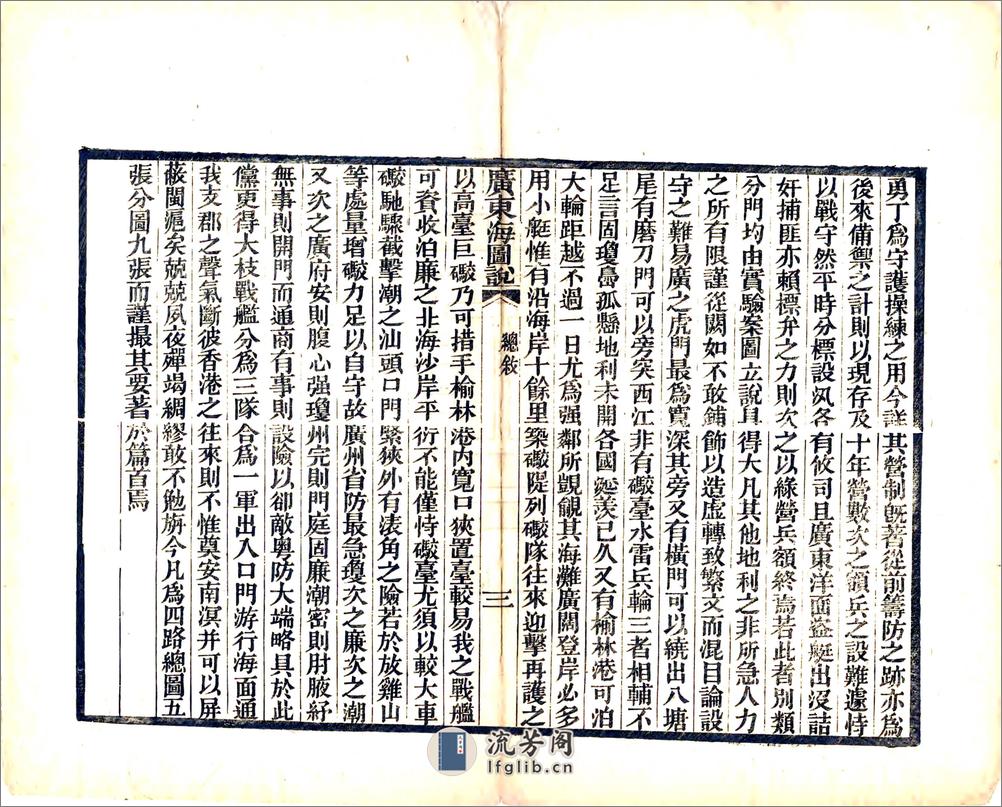 勇丁爲守護操練之用今詳其營制旣著從前籌防之跡亦爲
後來備禦之計則以現存及十年營數次之額兵之設難遽恃
以戰守然平時分標設汛各有攸司且廣東洋面盜艇出沒詰
奸捕匪亦賴標弁之力則次之以綠營兵額終焉若此者別類
分門均由實驗案圖立說具得大凡其他地利之非所急人力
之所有限謹從闕如不敢鋪飾以造虛轉致繁文而混目論設
守之難易廣之虎門最爲寬深其旁又有橫門可以繞出八塘
尾有磨刀門可以旁突西江非有礮臺水雷兵輪三者相輔不
足言固瓊島孤懸地利未開各國涎羨已久又有榆林港可泊
大輪距越不過一日尤爲强鄰所覬覦其海灘廣闊登岸必多
用小艇惟有沿海岸十餘里築礮隄列礮隊往來迎擊再護之
廣東海圖說 總敘 三
以高臺巨礮乃可措手榆林港內寬口狹置臺較易我之戰艦
可資收泊廉之北海沙岸平衍不能僅恃礮臺尤須以較大車
礮馳驟截擊潮之汕頭口門緊狹外有表角之險若於放雞山
等處量增礮力足以自守故廣州省防最急瓊次之廉次之潮
又次之廣府安則腹心强瓊州完則門庭固廉潮密則肘腋紓
無事則開門而通商有事則設險以卻敵粵防大端略具於此
儻更得大枝戰艦分爲三隊合爲一軍出入口門游行海面通
我支郡之聲氣斷彼香港之往來則不惟奠安南溟并可以屏
蔽閩滬矣兢兢夙夜殫竭綢繆敢不勉旃今凡爲四路總圖五
張分圖九張而謹撮其要著於篇首焉
流芳阁
lfglib.cn